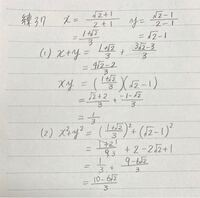 練37 x = (√2+1)/(2+1) y = (√2-1)/(2-1)
= (1+√2)/3 = √2-1
(1) x+y = (1+√2)/3 + (3√2-3)/3
= (4√2-2)/3
xy = ((1+√2)/3)(√2-1)
= (√2+2)/3 + (-1-√2)/3
= 1/3
(2) x²+y² = ((1+√2)/3)² + (√2-1)²
+ 2-2√2+1
= 1/3 + (9-6√2)/3
= (10-6√2)/3